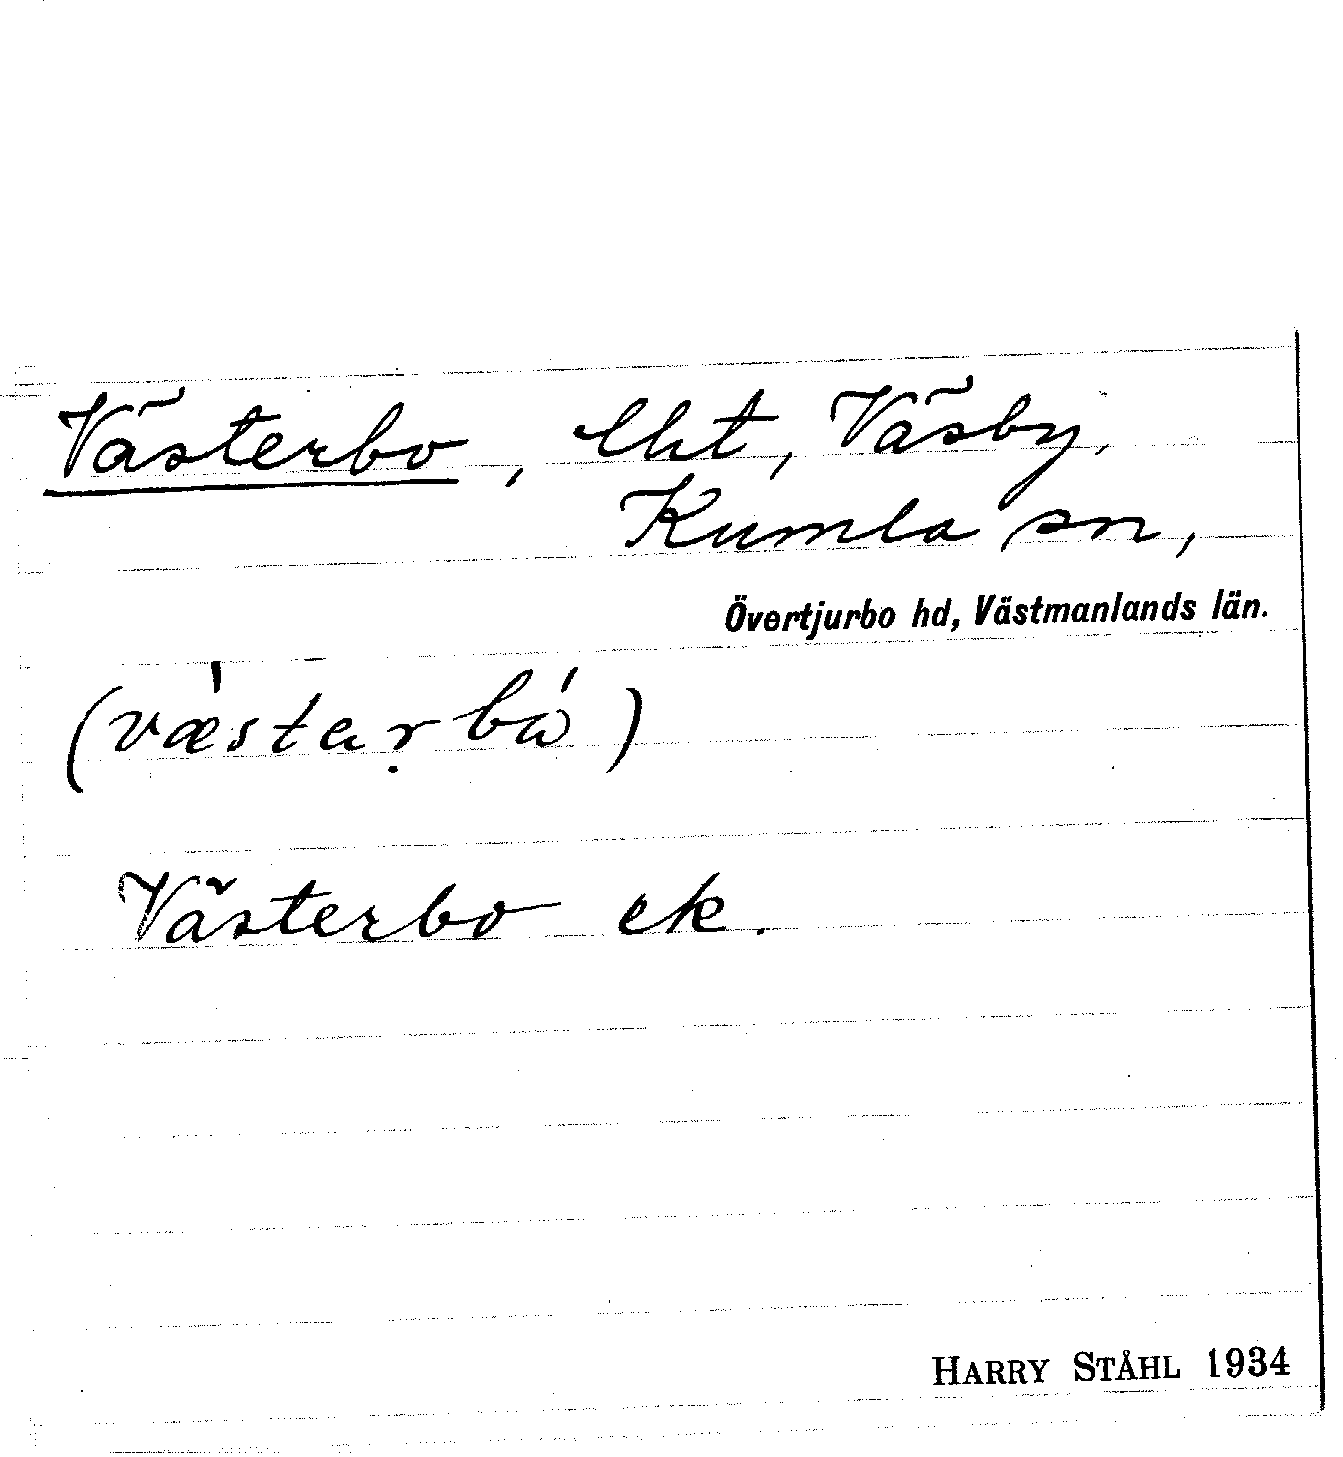 Västerbo, lht, Väsby,
Kumla sn,
Övertjurbo hd, Västmanlands län.
Västerbo ek.
HARRY STÅHL 1934